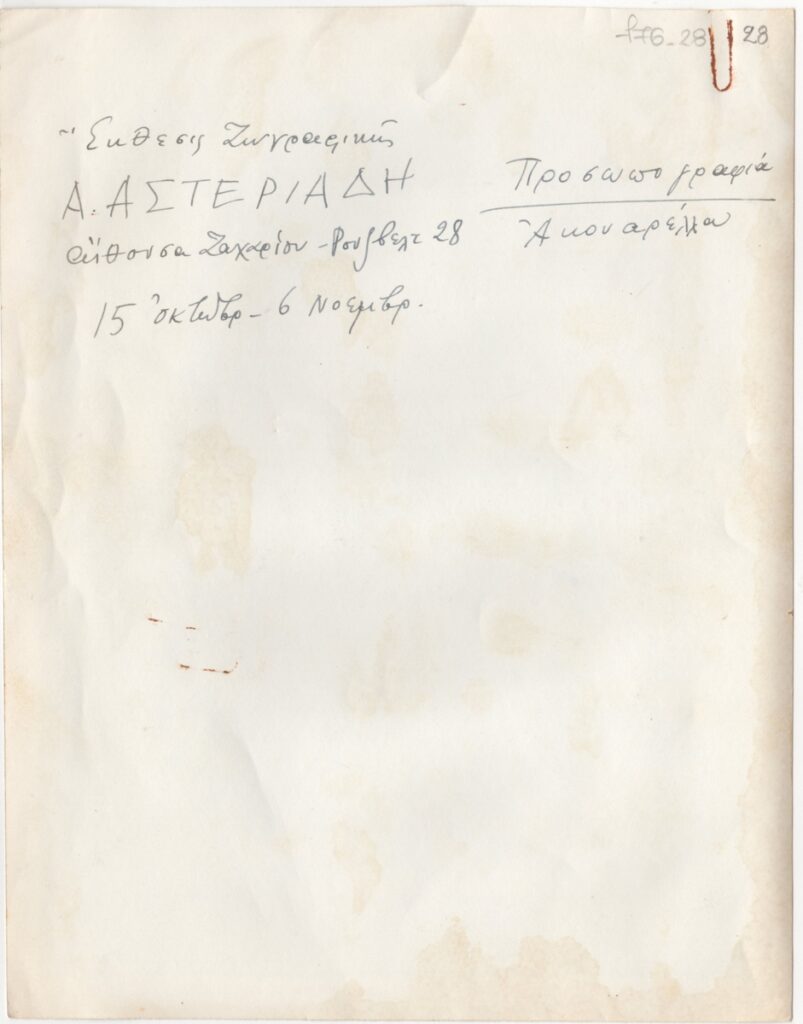 f76-28 28
Ἔκθεσις Ζωγραφικῆς
Α. ΑΣΤΕΡΙΑΔΗ
αἴθουσα Ζαχαρίου - Ρουζβελτ 28
15 Ὀκτωβρ - 6 Νοεμβρ.
Προσωπογραφία
Ἀκουαρέλλα